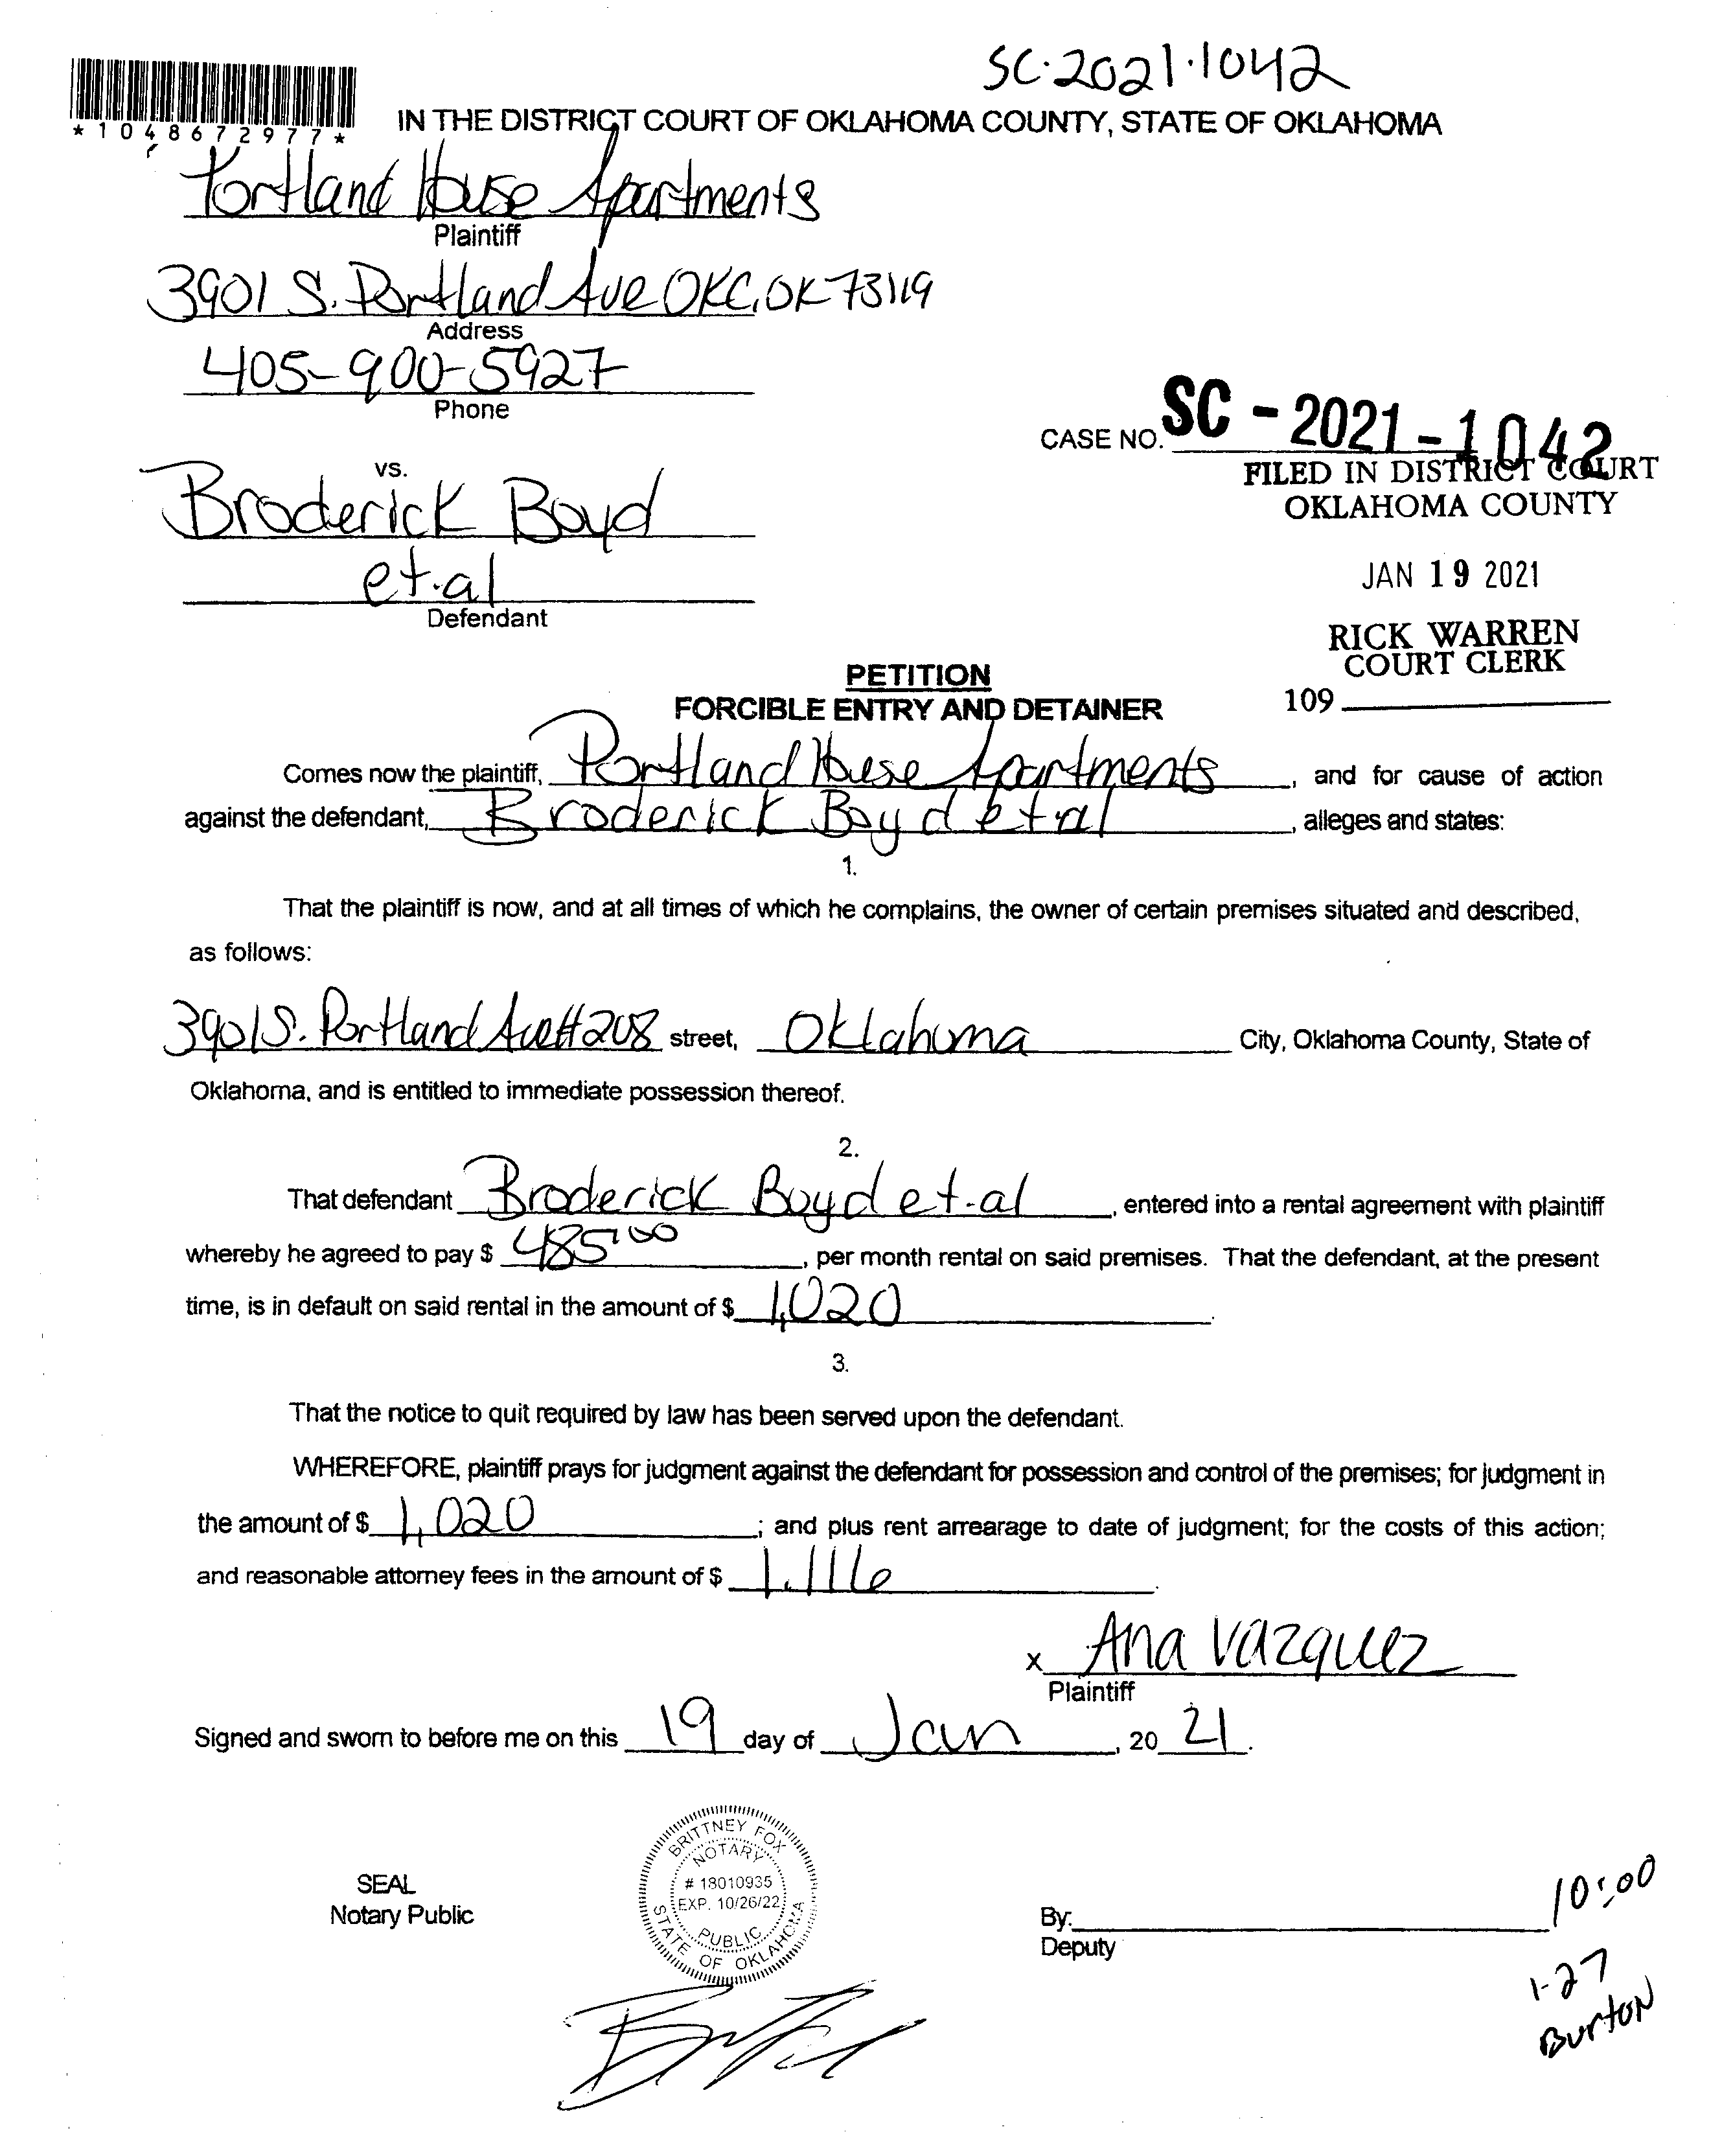 SC-2021-1042
*1048672977*
IN THE DISTRICT COURT OF OKLAHOMA COUNTY, STATE OF OKLAHOMA
Portland House Apartments
Plaintiff
3901 S. Portland Ave OKC, OK 73119
Address
405-900-5927
Phone
CASE NO. SC-2021-1042
vs.
FILED IN DISTRICT COURT
OKLAHOMA COUNTY
Broderick Boyd
et.al
Defendant
JAN 19 2021
RICK WARREN
COURT CLERK
109
PETITION
FORCIBLE ENTRY AND DETAINER
Comes now the plaintiff, Portland House Apartments, and for cause of action
against the defendant, Broderick Boyd et.al, alleges and states:
1.
That the plaintiff is now, and at all times of which he complains, the owner of certain premises situated and described,
as follows:
3901 S. Portland Ave #208 street, Oklahoma City, Oklahoma County, State of
Oklahoma, and is entitled to immediate possession thereof.
2.
That defendant Broderick Boyd et.al, entered into a rental agreement with plaintiff
whereby he agreed to pay $ 485.00, per month rental on said premises. That the defendant, at the present
time, is in default on said rental in the amount of $ 1,020.
3.
That the notice to quit required by law has been served upon the defendant.
WHEREFORE, plaintiff prays for judgment against the defendant for possession and control of the premises; for judgment in
the amount of $ 1,020; and plus rent arrearage to date of judgment; for the costs of this action;
and reasonable attorney fees in the amount of $ 1.116.
x Ana Vazquez
Plaintiff
Signed and sworn to before me on this 19 day of Jan, 20 21.
BRITTNEY FOX
NOTARY
# 18010935
EXP. 10/26/22
PUBLIC
STATE OF OKLAHOMA
SEAL
Notary Public
By:
Deputy
10:00
1-27
Burton